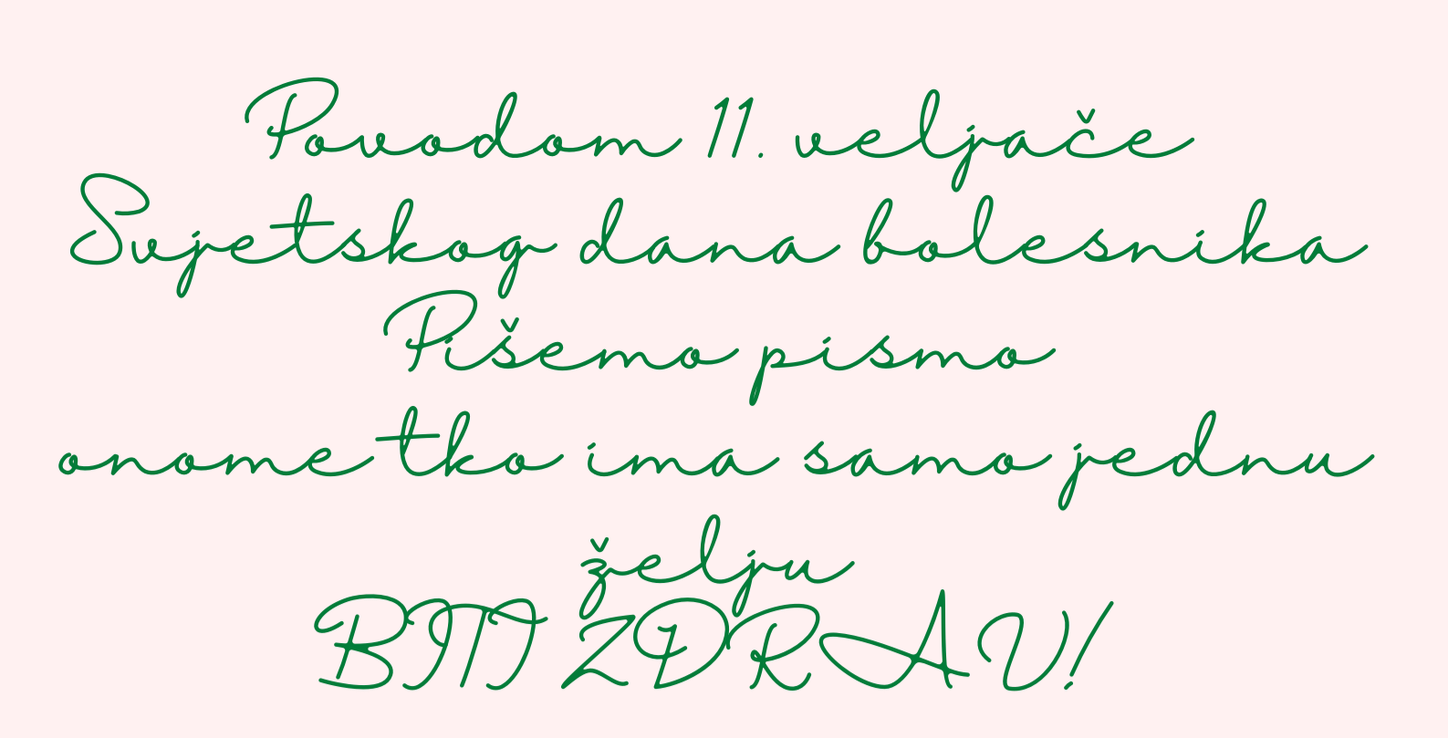 Povodom 11. veljače
Svjetskog dana bolesnika
Pišemo pismo
onome tko ima samo jednu
želju
BITI ZDRAV!